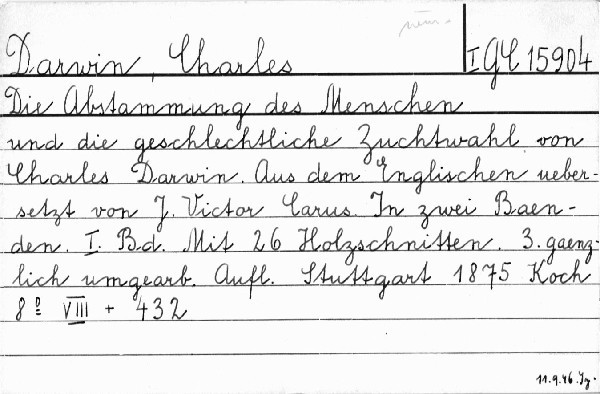 Darwin, Charles
I GC 15904
Die Abstammung des Menschen
und die geschlechtliche Zuchtwahl von
Charles Darwin. Aus dem Englischen ueber-
setzt von J. Victor Carus. In zwei Baen-
den. I. Bd. Mit 26 Holzschnitten. 3. gaenz-
lich umgearb. Aufl. Stuttgart 1875 Koch
8º VIII + 432
11.9.46.